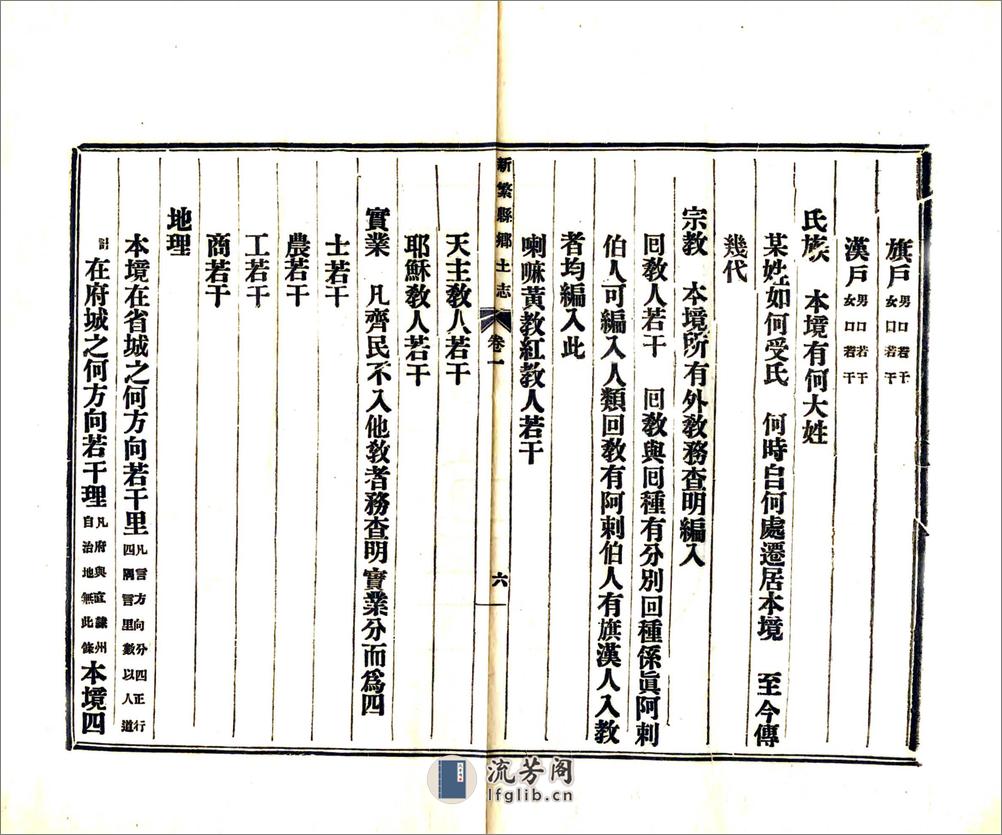 旗戶男口若干女口若干
漢戶男口若干女口若干
氏族 本境有何大姓
某姓如何受氏 何時自何處遷居本境 至今傳
幾代
宗教 本境所有外教務查明編入
回教人若干 回教與回種有分別回種係眞阿剌
伯人可編入人類回教有阿剌伯人有旗漢人入教
者均編入此
喇嘛黃教紅教人若干
新繁縣鄉土志 卷一 六
天主教人若干
耶穌教人若干
實業 凡齊民不入他教者務查明實業分而爲四
士若干
農若干
工若干
商若干
地理
本境在省城之何方向若干里凡言方向分四正行四隅言里數以人道
計在府城之何方向若干理凡府與直隸州自治地無此條本境四
流芳阁
lfglib.cn